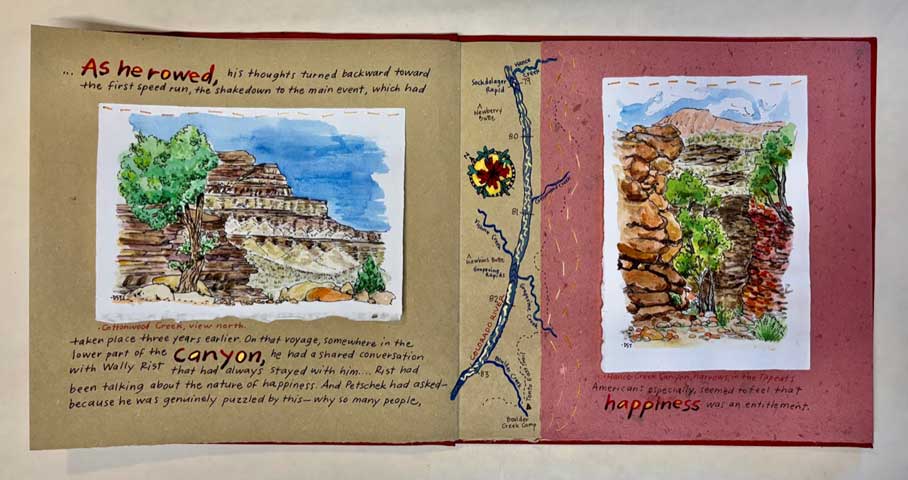 ... As he rowed, his thoughts turned backward toward
the first speed run, the shakedown to the main event, which had
·DST·
·Cottonwood Creek, view north.
taken place three years earlier. On that voyage, somewhere in the
lower part of the Canyon, he had a shared conversation
with Wally Rist that had always stayed with him.... Rist had
been talking about the nature of happiness. And Petschek had asked—
because he was genuinely puzzled by this—why so many people,
Hance
Creek
Sockdolager
Rapid
79
Newberry
Butte
80
N
81
Newbins Butte
Grapevine
Rapids
82
COLORADO RIVER
83
Boulder Creek
Tonto Trail
Boulder
Creek Camp
·DST
Hance Creek Canyon, Narrows, in the Tapeats
Americans especially, seemed to feel that
happiness was an entitlement.